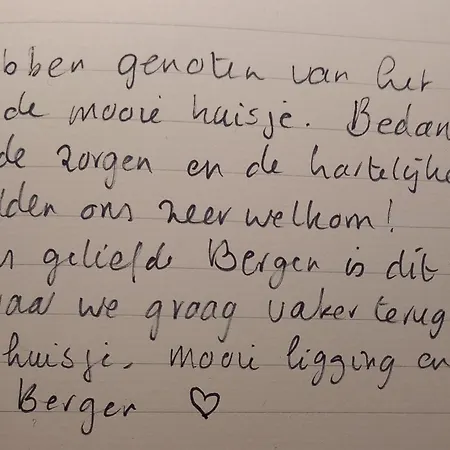 bben genoten van het
de mooie huisje. Bedan
de zorgen en de hartelijke
lden ons zeer welkom!
geliefde Bergen is dit
waar we graag vaker terug
huisje, mooi ligging en
Bergen ♡